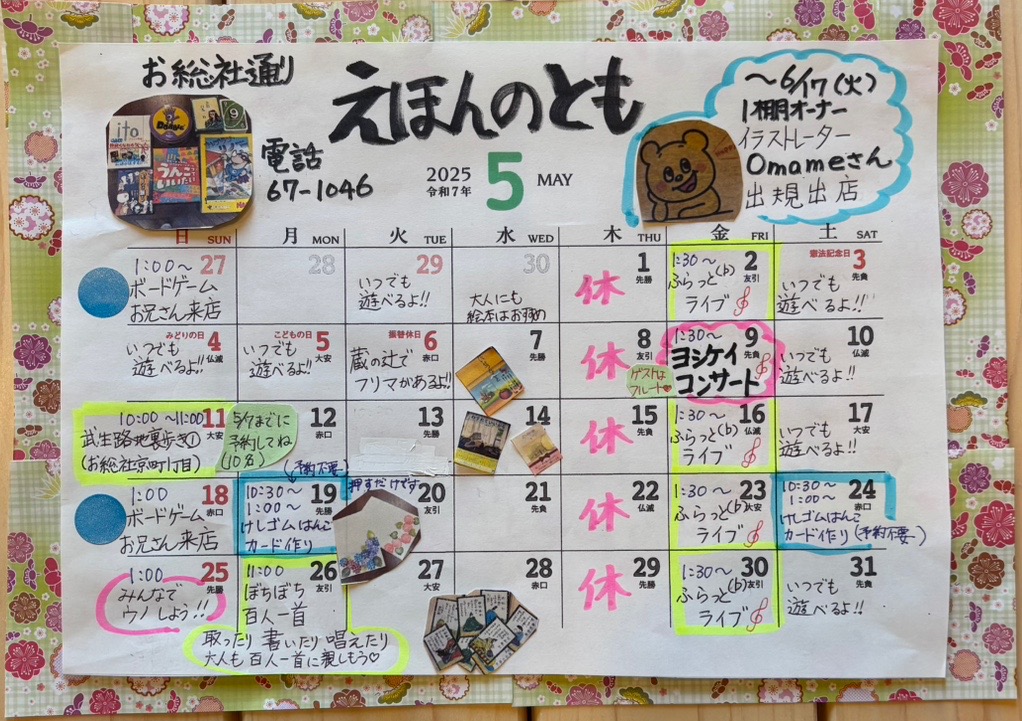 お総社通り
えほんのとも
電話
67-1046
2025
令和7年
5
MAY
〜6/17(火)
1棚オーナー
イラストレーター
Omameさん
出規出店
ito
うんこで
いいたい
9
日 SUN
月 MON
火 TUE
水 WED
木 THU
金 FRI
土 SAT
27
1:00〜
ボードゲーム
お兄さん来店
28
29
いつでも
遊べるよ!!
30
大人にも
絵本はおすすめ
1 先勝
休
2 友引
1:30〜
ふらっと(b)
ライブ
憲法記念日 3 先負
いつでも
遊べるよ!!
みどりの日 4 仏滅
いつでも
遊べるよ!!
こどもの日 5 大安
いつでも
遊べるよ!!
振替休日 6 赤口
蔵の辻で
フリマがあるよ!!
7 先勝
8 友引
休
ゲストは
フルート♡
9 先負
1:30〜
ヨシケイ
コンサート
10 仏滅
いつでも
遊べるよ!!
11 大安
10:00〜11:00
武生路地裏歩き①
(お総社京町1丁目)
12 赤口
5/7までに
予約してね
(10名)
13 先勝
14 友引
15 先負
休
16 仏滅
1:30〜
ふらっと(b)
ライブ
17 大安
いつでも
遊べるよ!!
18 赤口
1:00
ボードゲーム
お兄さん来店
(予約不要)
19 先勝
10:30〜
1:00〜
けしゴムはんこ
カード作り
押すだけです
20 友引
21 先負
22 仏滅
休
23 大安
1:30〜
ふらっと(b)
ライブ
24 赤口
10:30〜
1:00〜
けしゴムはんこ
カード作り(予約不要)
25 先勝
1:00
みんなで
ウノしよう!!
26 友引
11:00
ぼちぼち
百人一首
取ったり 書いたり 唱えたり
大人も百人一首に親しもう♡
27 大安
28 赤口
29 先勝
休
30 友引
1:30〜
ふらっと(b)
ライブ
31 先負
いつでも
遊べるよ!!